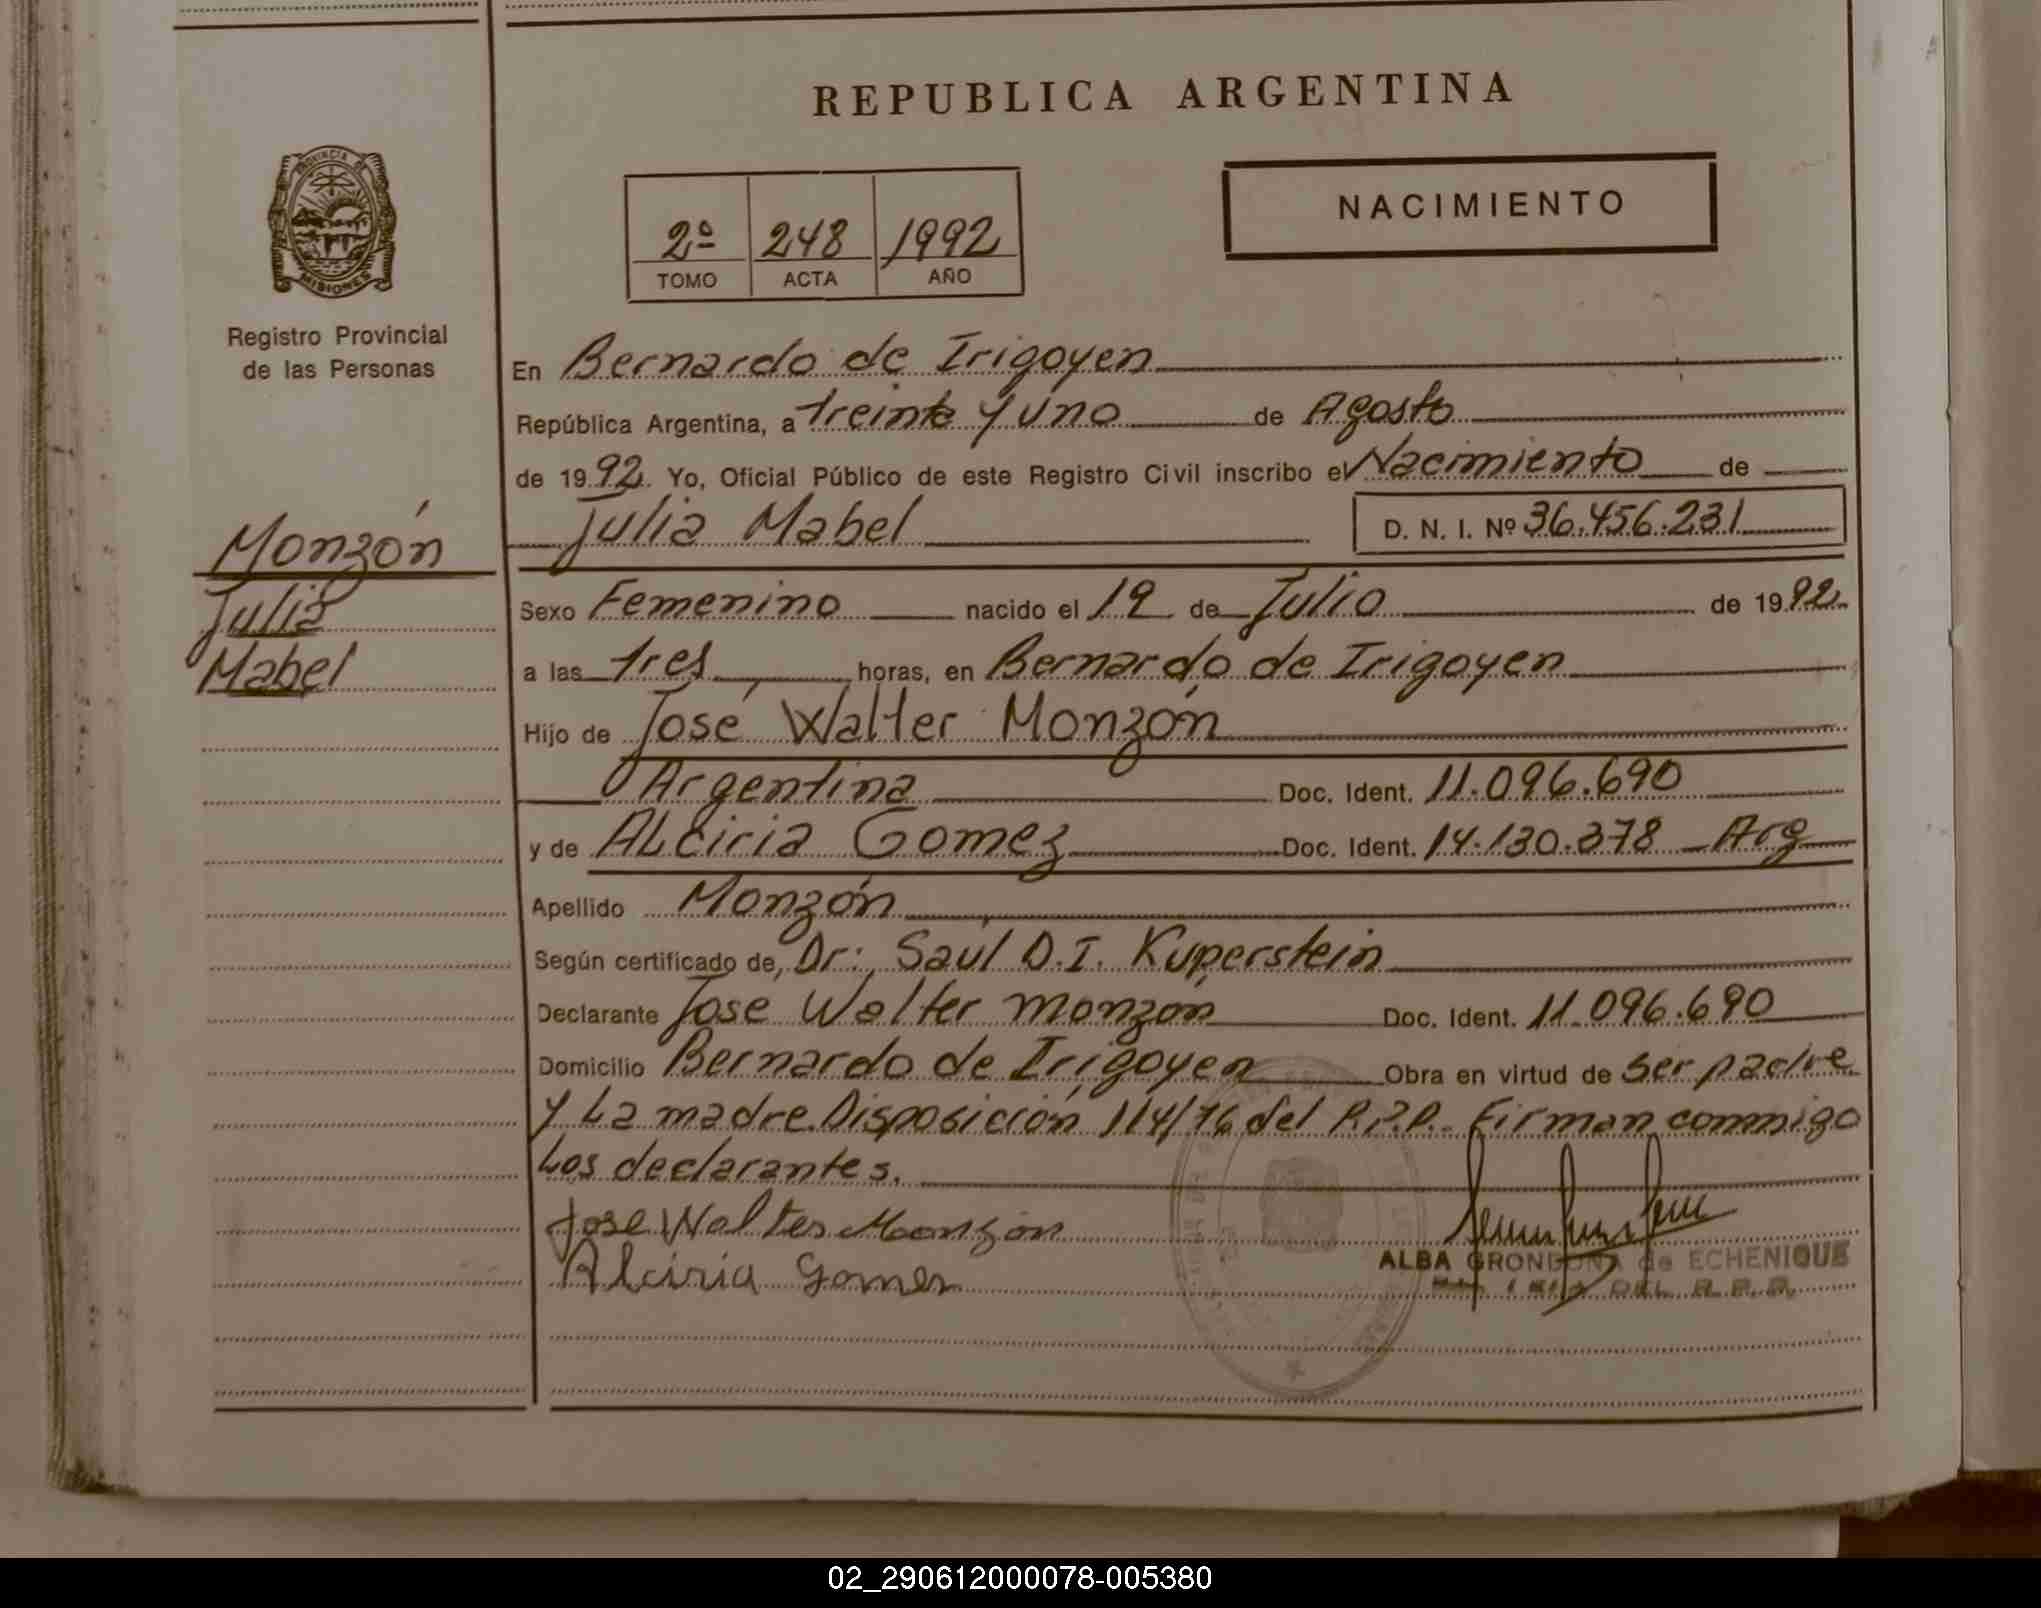 REPUBLICA ARGENTINA
PROVINCIA DE
MISIONES
Registro Provincial
de las Personas
2º 248 1992
TOMO ACTA AÑO
NACIMIENTO
Monzón
Julia
Mabel
En Bernardo de Irigoyen
República Argentina, a treinta y uno de Agosto
de 1992. Yo, Oficial Público de este Registro Civil inscribo el Nacimiento de
Julia Mabel D. N. I. Nº 36.456.231
Sexo Femenino nacido el 19 de Julio de 1992
a las tres horas, en Bernardo de Irigoyen
Hijo de José Walter Monzón
Argentina Doc. Ident. 11.096.690
y de ALciria Gomez Doc. Ident. 14.130.378 Arg
Apellido Monzón
Según certificado de, Dr: Saúl D.I. Kuperstein
Declarante Jose Walter Monzón Doc. Ident. 11.096.690
Domicilio Bernardo de Irigoyen Obra en virtud de ser padre
y La madre. Disposición 114/76 del R.P.P. Firman conmigo
Los declarantes.
Jose Walter Monzon
Alciria Gomes
ALBA GRONDONA de ECHENIQUE
DEL R.P.P.
02_290612000078-005380